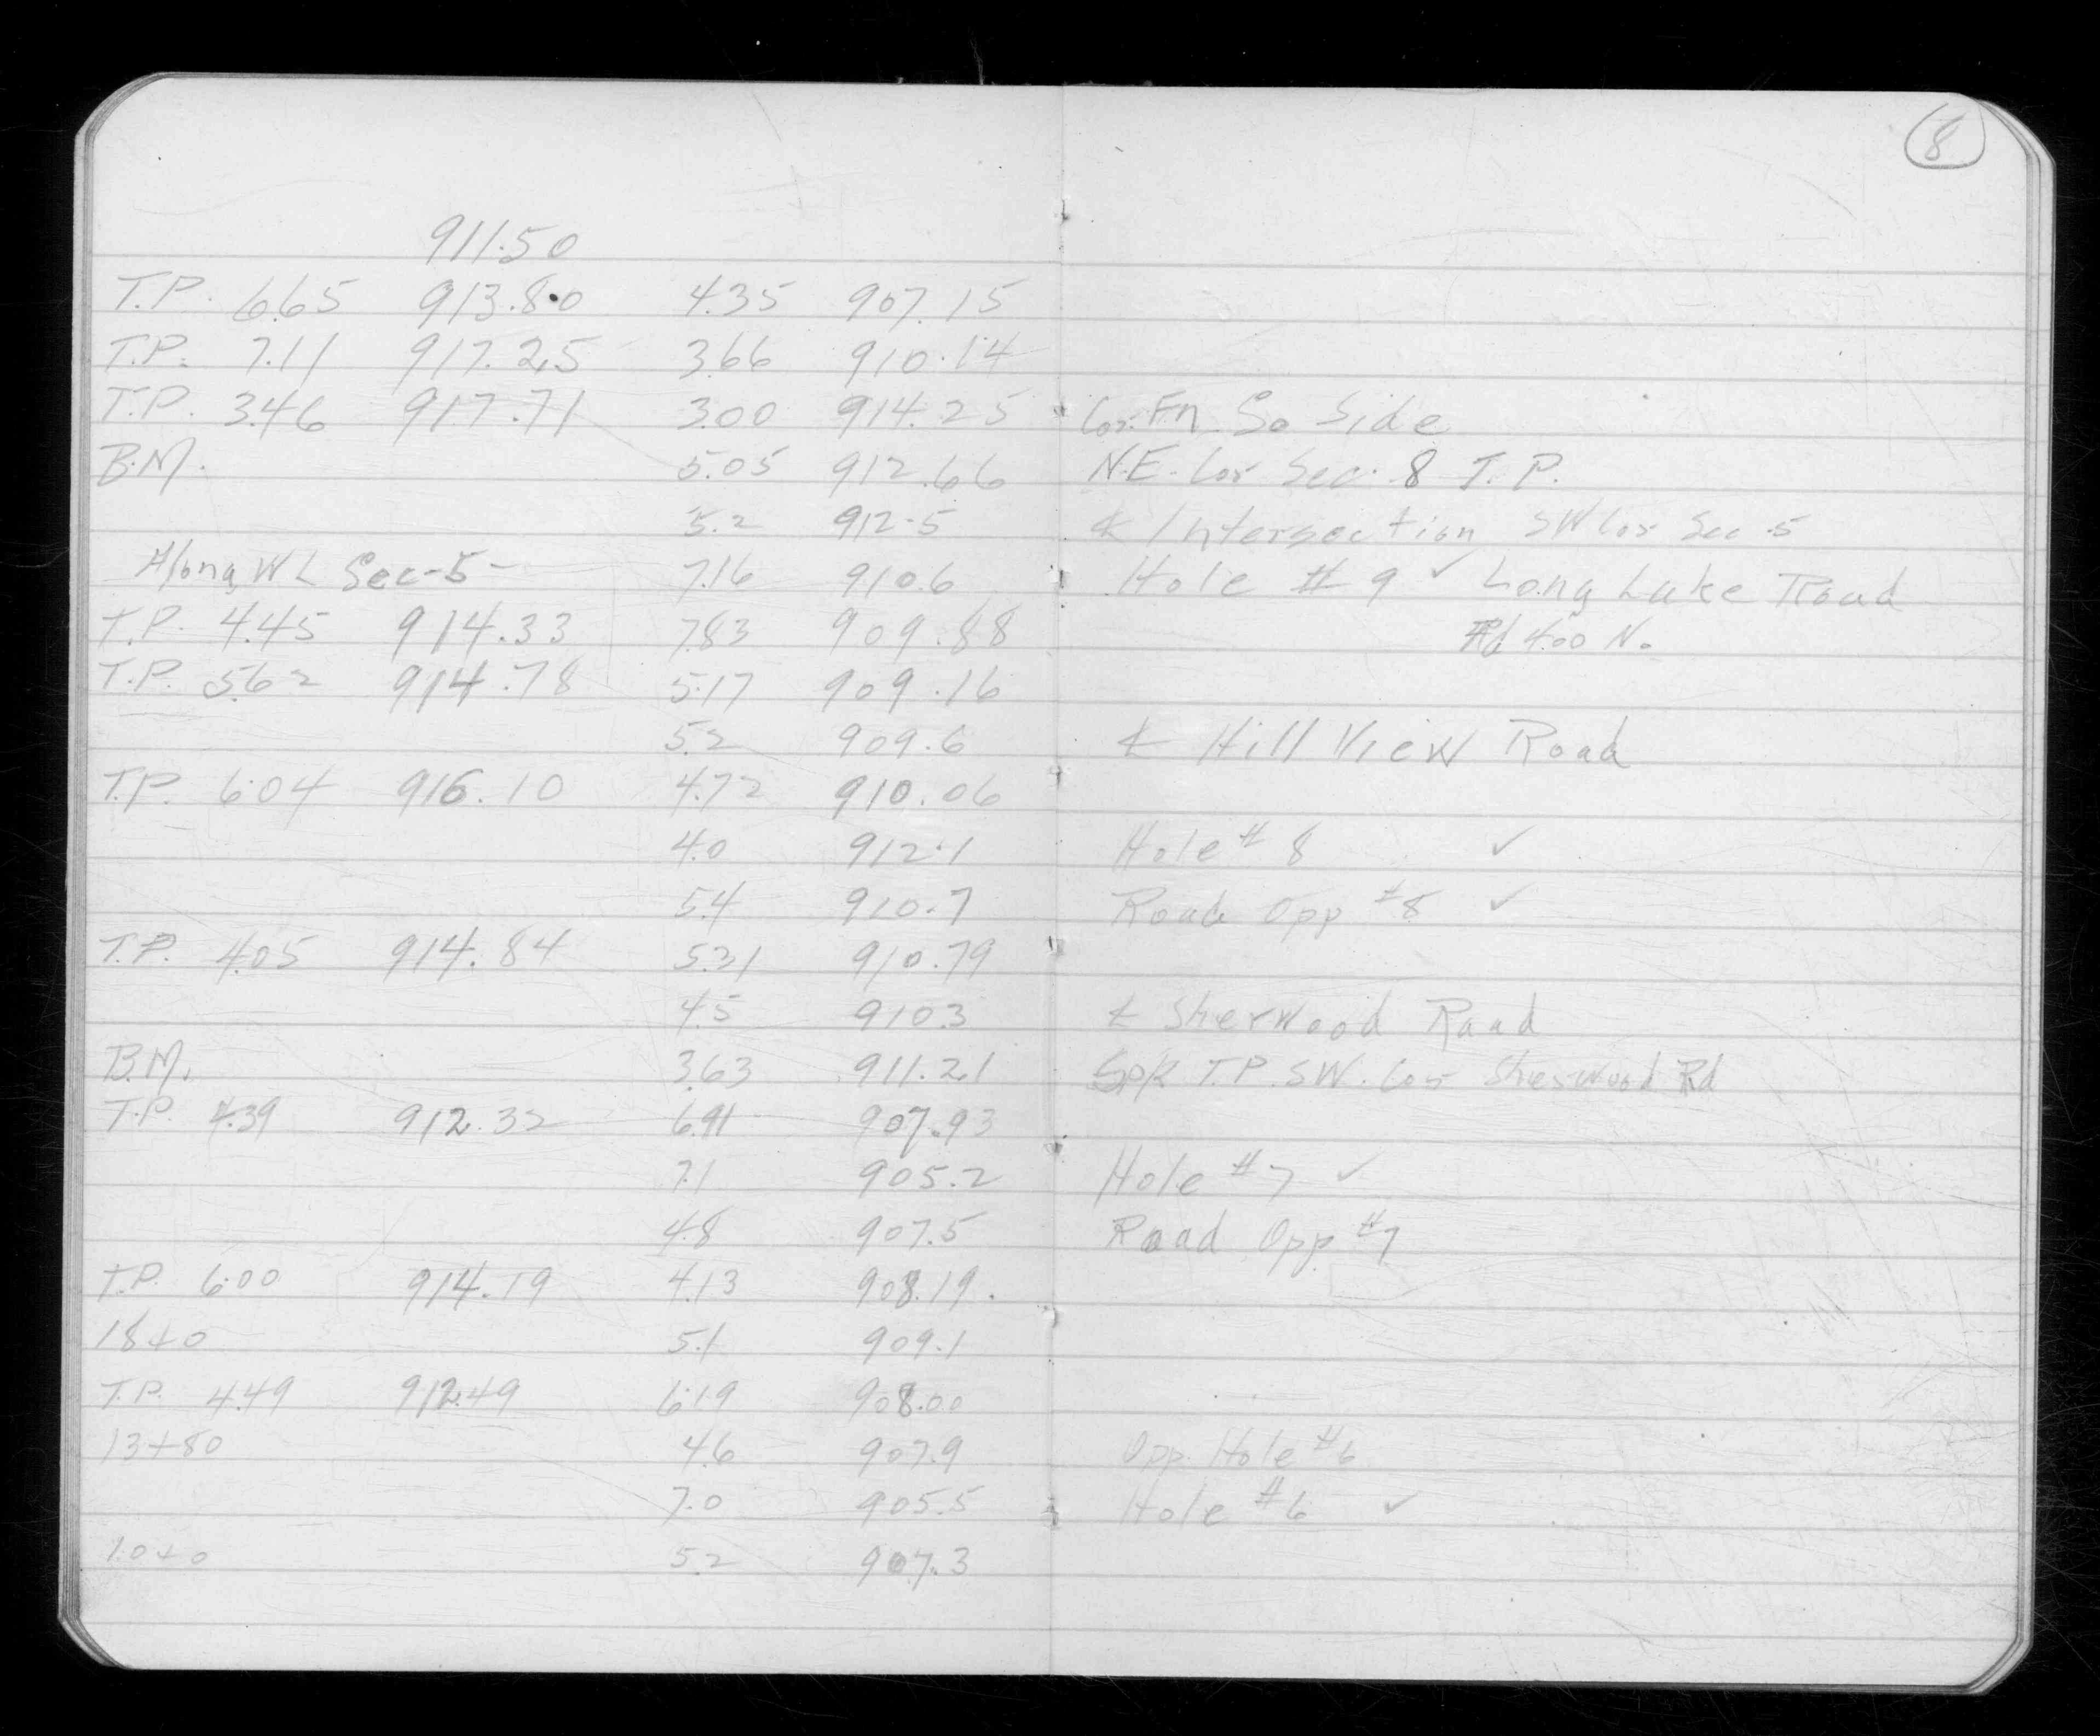 8
911.50
T.P. 6.65 913.80 4.35 907.15
T.P. 7.11 917.25 3.66 910.14
T.P. 3.46 917.71 3.00 914.25 Cor. Fn. So Side
B.M. 5.05 912.66 N.E. Cor Sec. 8 T.P.
5.2 912.5 ℄ Intersection SW Cor Sec 5
Along W L Sec-5- 7.16 910.6 Hole #9 ✓ Long Lake Road
T.P. 4.45 914.33 7.83 909.88 Rd 4.00 N.
T.P. 5.62 914.78 5.17 909.16
5.2 909.6 ℄ Hill View Road
T.P. 6.04 916.10 4.72 910.06
4.0 912.1 Hole #8 ✓
5.4 910.7 Road Opp #8 ✓
T.P. 4.05 914.84 5.31 910.79
4.5 910.3 ℄ Sherwood Road
B.M. 3.63 911.21 Spk T.P. S.W. Cor Sherwood Rd
T.P. 4.39 912.32 6.91 907.93
7.1 905.2 Hole #7 ✓
4.8 907.5 Road Opp #7
T.P. 6.00 914.19 4.13 908.19.
18+0 5.1 909.1
T.P. 4.49 912.49 6.19 908.00
13+80 4.6 907.9 Opp. Hole #6
7.0 905.5 Hole #6 ✓
10+0 5.2 907.3